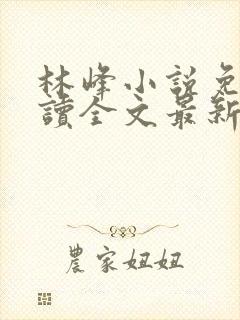 林峰小説免
讀全文最新
農家妞妞